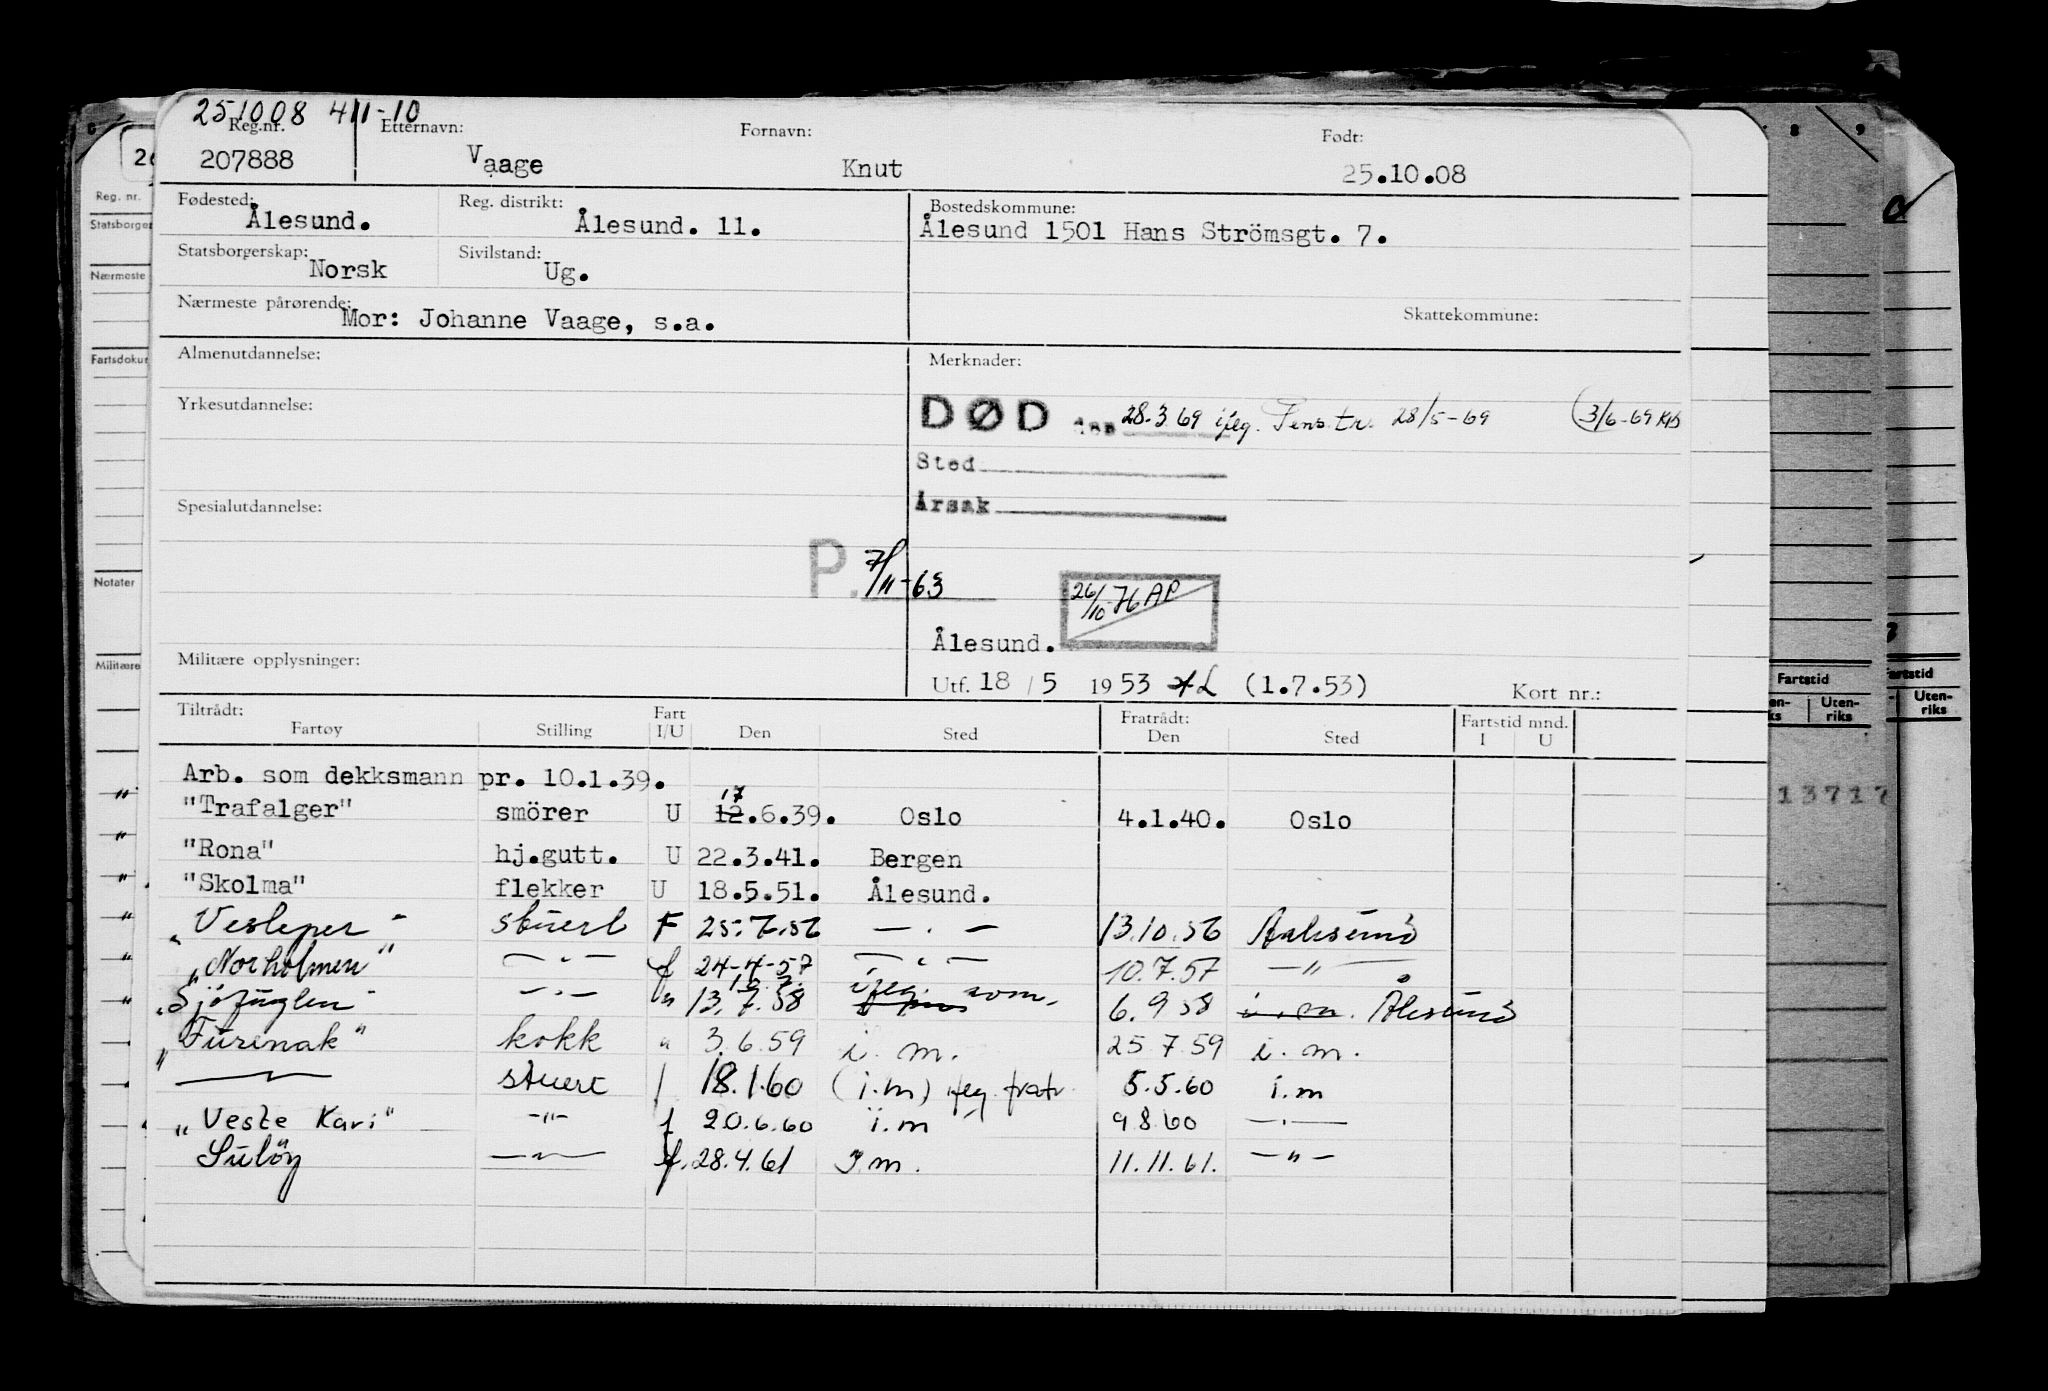 251008 411-10
Reg.nr. Etternavn: Fornavn: Født:
207888 Vaage Knut 25.10.08
Fødested: Ålesund. Reg. distrikt: Ålesund. 11. Bostedskommune:
Ålesund 1501 Hans Strömsgt. 7.
Statsborgerskap: Norsk Sivilstand: Ug.
Nærmeste pårørende: Mor: Johanne Vaage, s.a. Skattekommune:
Almenutdannelse: Merknader:
Yrkesutdannelse: DØD den 28.3.69 iflg. Pens.tr. 28/5-69 3/6-69
Sted
Årsak
Spesialutdannelse:
P. 7/11-63
26/10-76 AP
Ålesund.
Militære opplysninger: Utf. 18/5 1953 (1.7.53) Kort nr.:
Tiltrådt: Fart Fratrådt: Fartstid mnd.
Fartøy Stilling I/U Den Sted Den Sted I U
Arb. som dekksmann pr. 10.1.39.
"Trafalger" smörer U 12.6.39. 17 Oslo 4.1.40. Oslo
"Rona" hj.gutt. U 22.3.41. Bergen
"Skolma" flekker U 18.5.51. Ålesund.
"Vesleper" stuert F 25.7.56 — . — 13.10.56 Aalesund
"Norholmen" — " — f 24-4-57 — " — 10.7.57 — " —
"Sjöfuglen" — " — " 13.7.58 iflg. 6.9.58 i.m. Ålesund
"Furenak" kokk " 3.6.59 i.m. 25.7.59 i.m.
— " — stuert f 18.1.60 (i.m) iflg. fratr. 5.5.60 i.m
"Veste Kari" — " — f 20.6.60 i.m 9.8.60 — " —
Sulöy — " — f. 28.4.61 I.m. 11.11.61. — " —
Reg. nr.
Statsborger
Nærmeste
Fartsdoku
Notater
Militære
Fartstid
Uten-
riks
Uten-
riks
13717